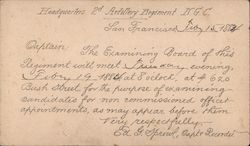 Headquarters 2d Artillery Regiment N.G.C.
San Francisco, Feby 15 188
Captain:
The Examining Board of this
Regiment will meet Tuesday evening,
Feby 19 188 at 8 o'clock, at # 620
Bush Street for the purpose of examining
candidates for non commissioned officers
appointments, as may appear before them
Very respectfully
Capt & Recorder